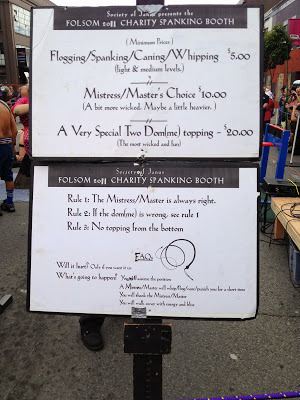 Society of Janus presents the
FOLSOM 2011 CHARITY SPANKING BOOTH
( Minimum Prices )
Flogging/Spanking/Caning/Whipping $5.00
(light & medium levels.)
Mistress/Master's Choice $10.00
(A bit more wicked. Maybe a little heavier. )
A Very Special Two Dom(me) topping - $20.00
(The most wicked and fun)
Society of Janus
FOLSOM 2011 CHARITY SPANKING BOOTH
Rule 1: The Mistress/Master is always right.
Rule 2: If the dom(me) is wrong, see rule 1
Rule 3: No topping from the bottom
FAQs:
Will it hurt? Only if you want it to
What's going to happen? You will assume the position
A Mistress/Master will whip/flog/cane/punish you for a short time
You will thank the Mistress/Master
You will walk away with energy and bliss